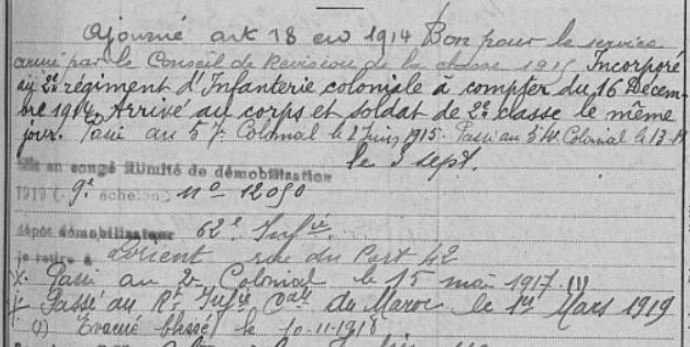 Ajourné art 18 en 1914 Bon pour le service
armé par le Conseil de Revision de la classe 1915 Incorporé
au 2e régiment d'Infanterie coloniale à compter du 16 Décem-
bre 1914. Arrivé au corps et soldat de 2e classe le même
jour. Passé au 5 Colonial le 2 Juin 1915. Passé au Colonial le
le 3 sept.
Mis en congé illimité de démobilisation
1919 ( 9e échelon) no 12090
dépôt démobilisateur 62e Infie
se retire à Lorient rue du Port 42
X Passé au 2e Colonial le 15 mai 1917 (1)
Passé au Rt Infie Cale du Maroc le 1er Mars 1919
(1) Evacué blessé le 10-11-1918